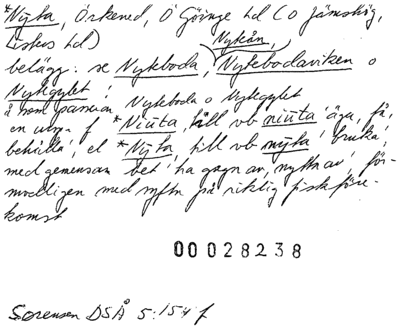 *Nyta, Örkened, Ö Göinge hd (o Jämshög,
Listers hd)
Nykån,
belägg: se Nykeboda, Nykebodaviken o
Nykegylet;
å som Nykeboda o Nykegylet
en utvgn f *Niūta, till vb niūta 'äga, få,
behålla', el *Nȳta till vb nȳta 'bruka',
med gemensam bet 'ha gagn av, nytta av', för-
modligen med syfta på riklig fiskföre-
komst
00028238
Sørensen DSÅ 5:154 f